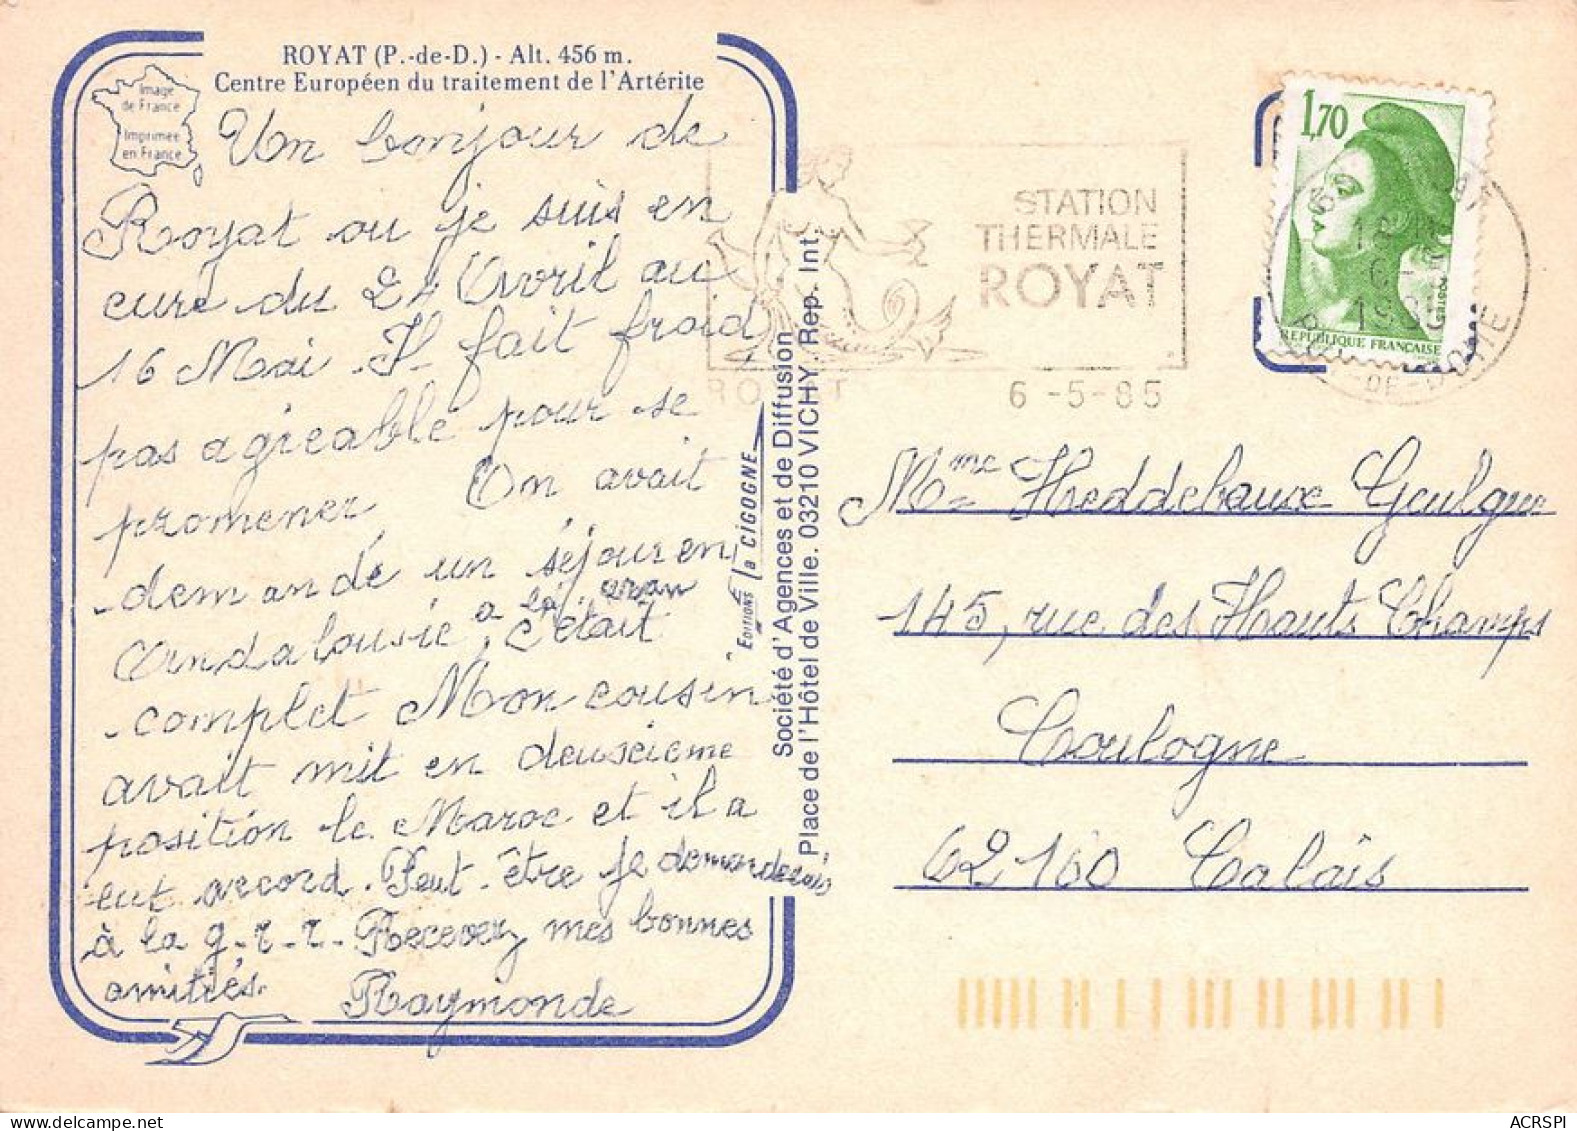 ROYAT (P.-de-D.) - Alt. 456 m.
Centre Européen du traitement de l'Artérite
Image
de France
Imprimée
en France
Un bonjour de
Royat ou je suis en
cure du 24 Avril au
16 Mai. Il fait froid
pas agréable pour se
promener On avait
demandé un séjour en
Andalousie a la
c'était
complet Mon cousin
avait mit en deuxieime
position le Maroc et il a
eut accord. Peut-être je demanderais
à la g-r-r- Recevez mes bonnes
amitiés.
Raymonde
EDITIONS la CIGOGNE
Société d'Agences et de Diffusion
Place de l'Hôtel de Ville. 03210 VICHY. Rep. Int.
STATION
THERMALE
ROYAT
ROYAT
6 -5-85
1,70
POSTES
REPUBLIQUE FRANÇAISE
-DE-DOME
Mme Heddebaux
145, rue des Hauts Champs
Coulogne
62160 Calais
ACRSPI